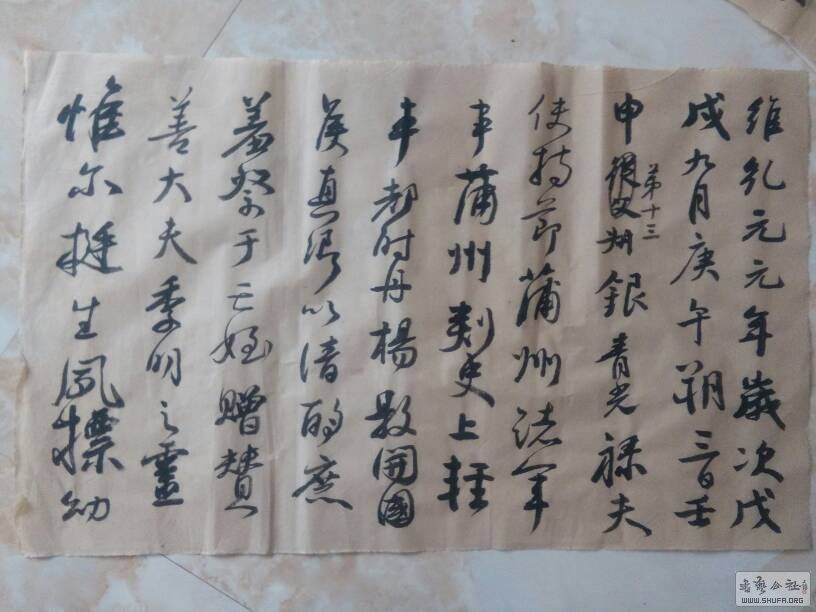 維乾元元年歲次戊
戌九月庚午朔三日壬
申第十三叔銀青光祿夫
使持節蒲州諸軍
事蒲州刺史上輕
車都尉丹楊縣開國
侯真卿以清酌庶
羞祭于亡姪贈贊
善大夫季明之靈
惟尔挺生夙標幼
書藝公社
WWW.SHUFA.ORG